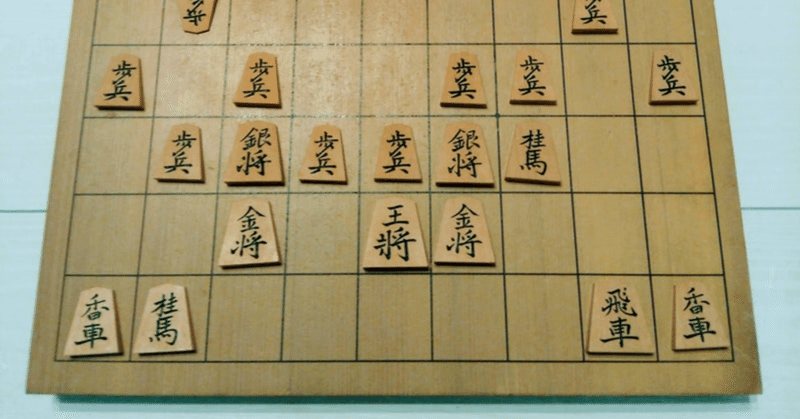 歩 歩兵
歩兵 歩兵 歩兵 歩兵 歩兵
歩兵 銀将 歩兵 歩兵 銀将 桂馬
金将 王将 金将
香車 桂馬 飛車 香車